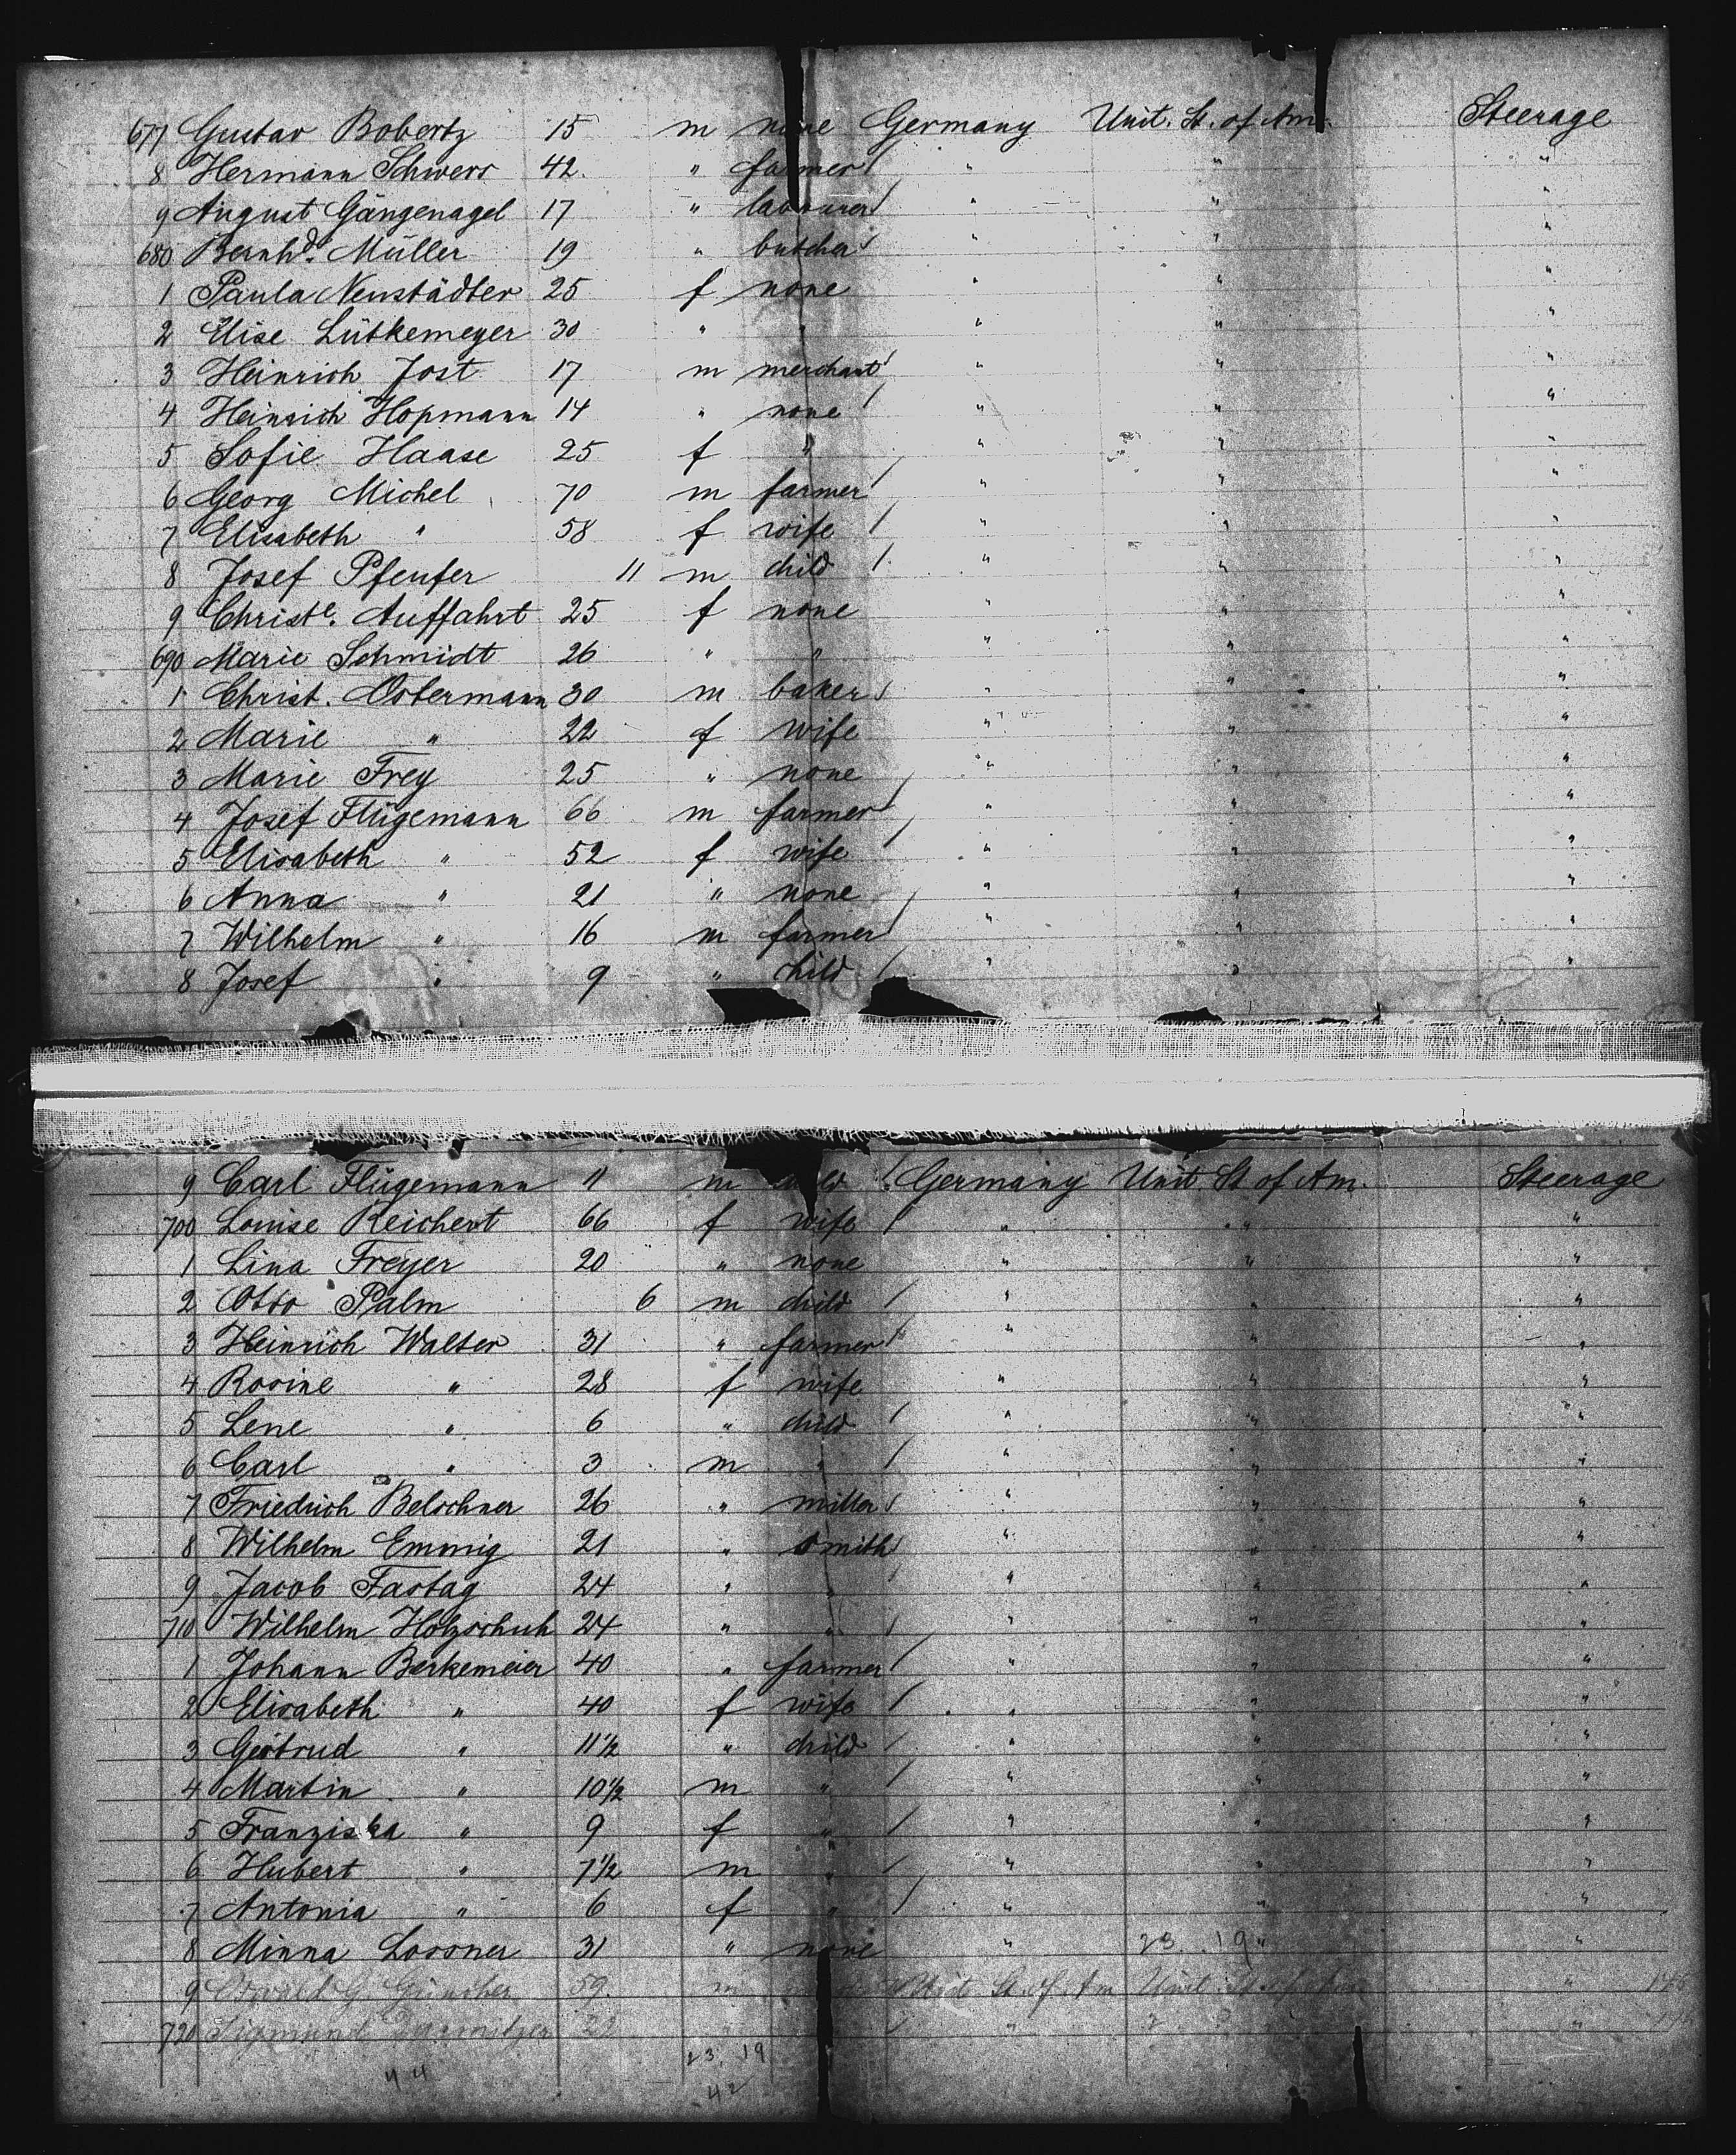 677 Gustav Bobertz 15 m none Germany Unit. St. of Am. Steerage
8 Hermann Schwers 42. " farmer / " " "
9 August Gängenagel 17 " labourer / " " "
680 Bernhd. Müller 19 " butcher / " " "
1 Paula Neustädter 25 f none " " "
2 Elise Lütkemeyer 30 " " " " "
3 Heinrich Jost 17 m merchant / " " "
4 Heinrich Hopmann 14 " none / " " "
5 Sofie Haase 25 f " " " "
6 Georg Michel 70 m farmer / " " "
7 Elisabeth " 58 f wife / " " "
8 Josef Pfenfer 11 m child / " " "
9 Christe. Auffahrt 25 f none " " "
690 Marie Schmidt 26 " " " " "
1 Christ. Ostermann 30 m baker / " " "
2 Marie " 22 f wife " " "
3 Marie Frey 25 " none " " "
4 Josef Flügemann 66 m farmer / " " "
5 Elisabeth " 52 f wife / " " "
6 Anna " 21 " none " " "
7 Wilhelm " 16 m farmer / " " "
8 Josef " 9 " child / " " "
9 Carl Flügemann 11 m child / Germany Unit. St of Am. Steerage
700 Louise Reichert 66 f wife / " " "
1 Lina Freyer 20 " none " " "
2 Otto Palm 6 m child / " " "
3 Heinrich Walter 31 " farmer / " " "
4 Rosine " 28 f wife " " "
5 Lene " 6 " child / " " "
6 Carl " 3 m " / " " "
7 Friedrich Belschner 26 " miller / " " "
8 Wilhelm Emmig 21 " smith / " " "
9 Jacob Fastag 24 " " / " " "
710 Wilhelm Holzschuh 24 " " / " " "
1 Johann Berkemeier 40 " farmer / " " "
2 Elisabeth " 40 f wife / " " "
3 Gertrud " 11 1/2 " child / " " "
4 Martin " 10 1/2 m " / " " "
5 Franziska " 9 f " / " " "
6 Hubert " 7 1/2 m " / " " "
7 Antonia " 6 f " / " " "
8 Minna Lossner 31 " none " 23. 19 " "
9 Oswald G. Günther 59. m Unit St. of Am Unit. St. of Am "
720 Sigmund 22 " " " "
23. 19
44
42